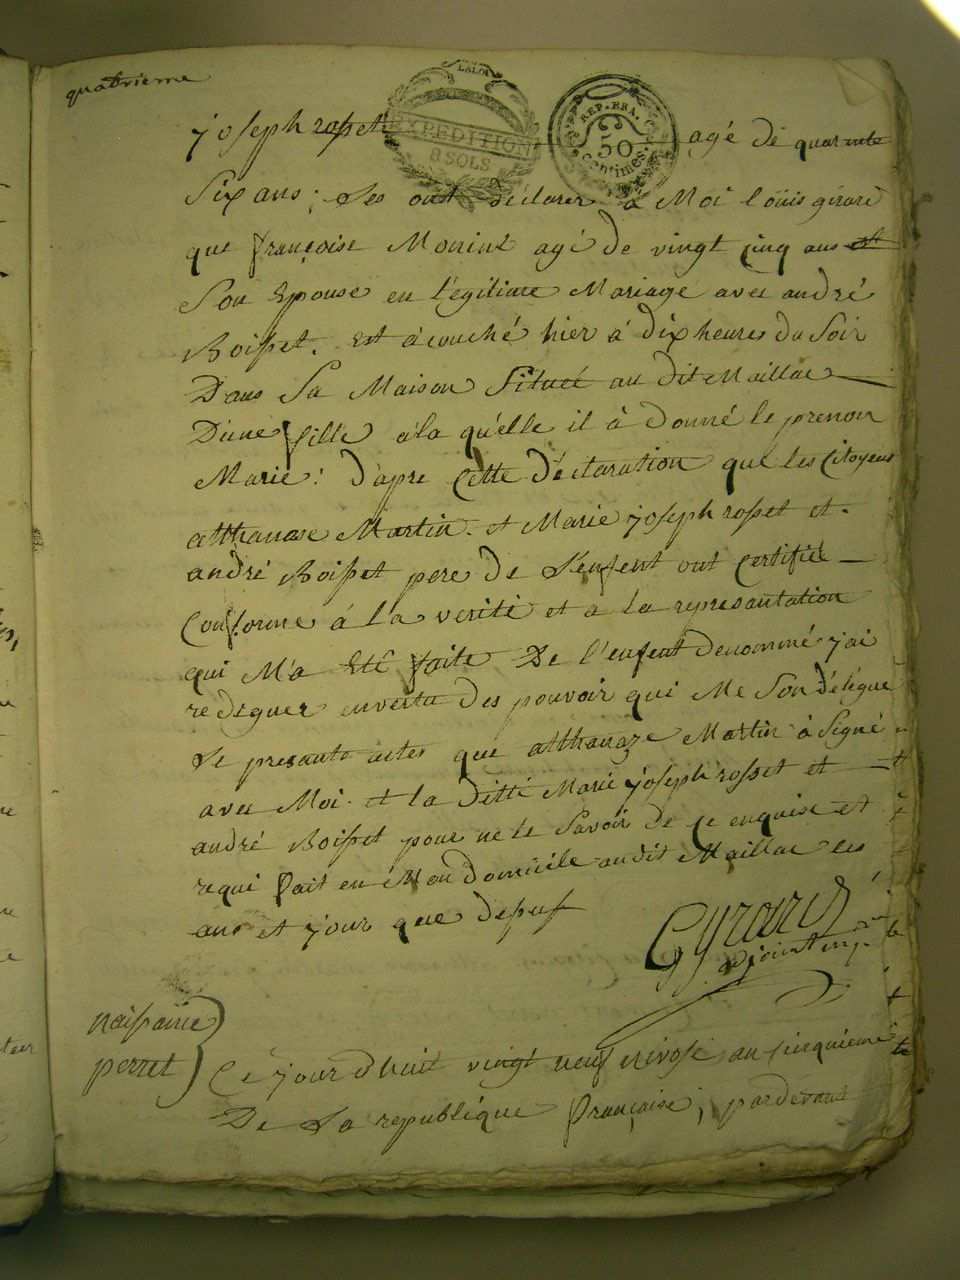 quatrieme
LALOI
EXPEDITION
8 SOLS
REP. FRA.
50
Centimes.
joseph rosset agé de quarante
Six ans; Les ont déclarer à Moi loüis girard
que françoise Monint agé de vingt cinq ans est
Son Epouse en légitime Mariage avec andré
Boisset. Est acouché hier à dix heures du Soir
Dans Sa Maison Situeé au dit Maillac
D'une fille àla qu'elle il à Donné le prenom
Marie: d'apre Cette Déclaration que les Citoyens
atthanase Martin. et Marie joseph rosset et.
andré Boisset pere de L'enfent ont Certifié
Conforme à la verité et a la represantation
qui M'a Eté faite De l'enfent denommé j'ai
redeguer envertu Des pouvoir qui Me Son Délégue
Le presante actes que atthanaze Martin à Signé
avec Moi. et la ditte Marie joseph rosset et
andré Boisset pour ne le Savoir De ce enquise et
requi fait en Mon Domicile audit Maillac les
ans et jour que depuf
Gyrard
adjoint
naissance
perret
Ce jour d'huit vingt neuf nivose an cinquieme
De La republique française, pardevant